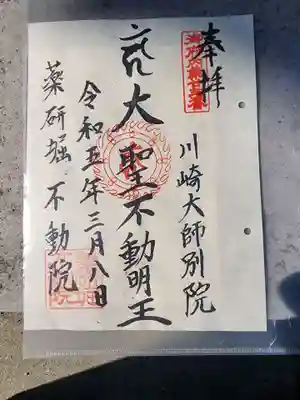 奉拝
川崎大師別院
大聖不動明王
令和五年三月八日
薬研堀不動院